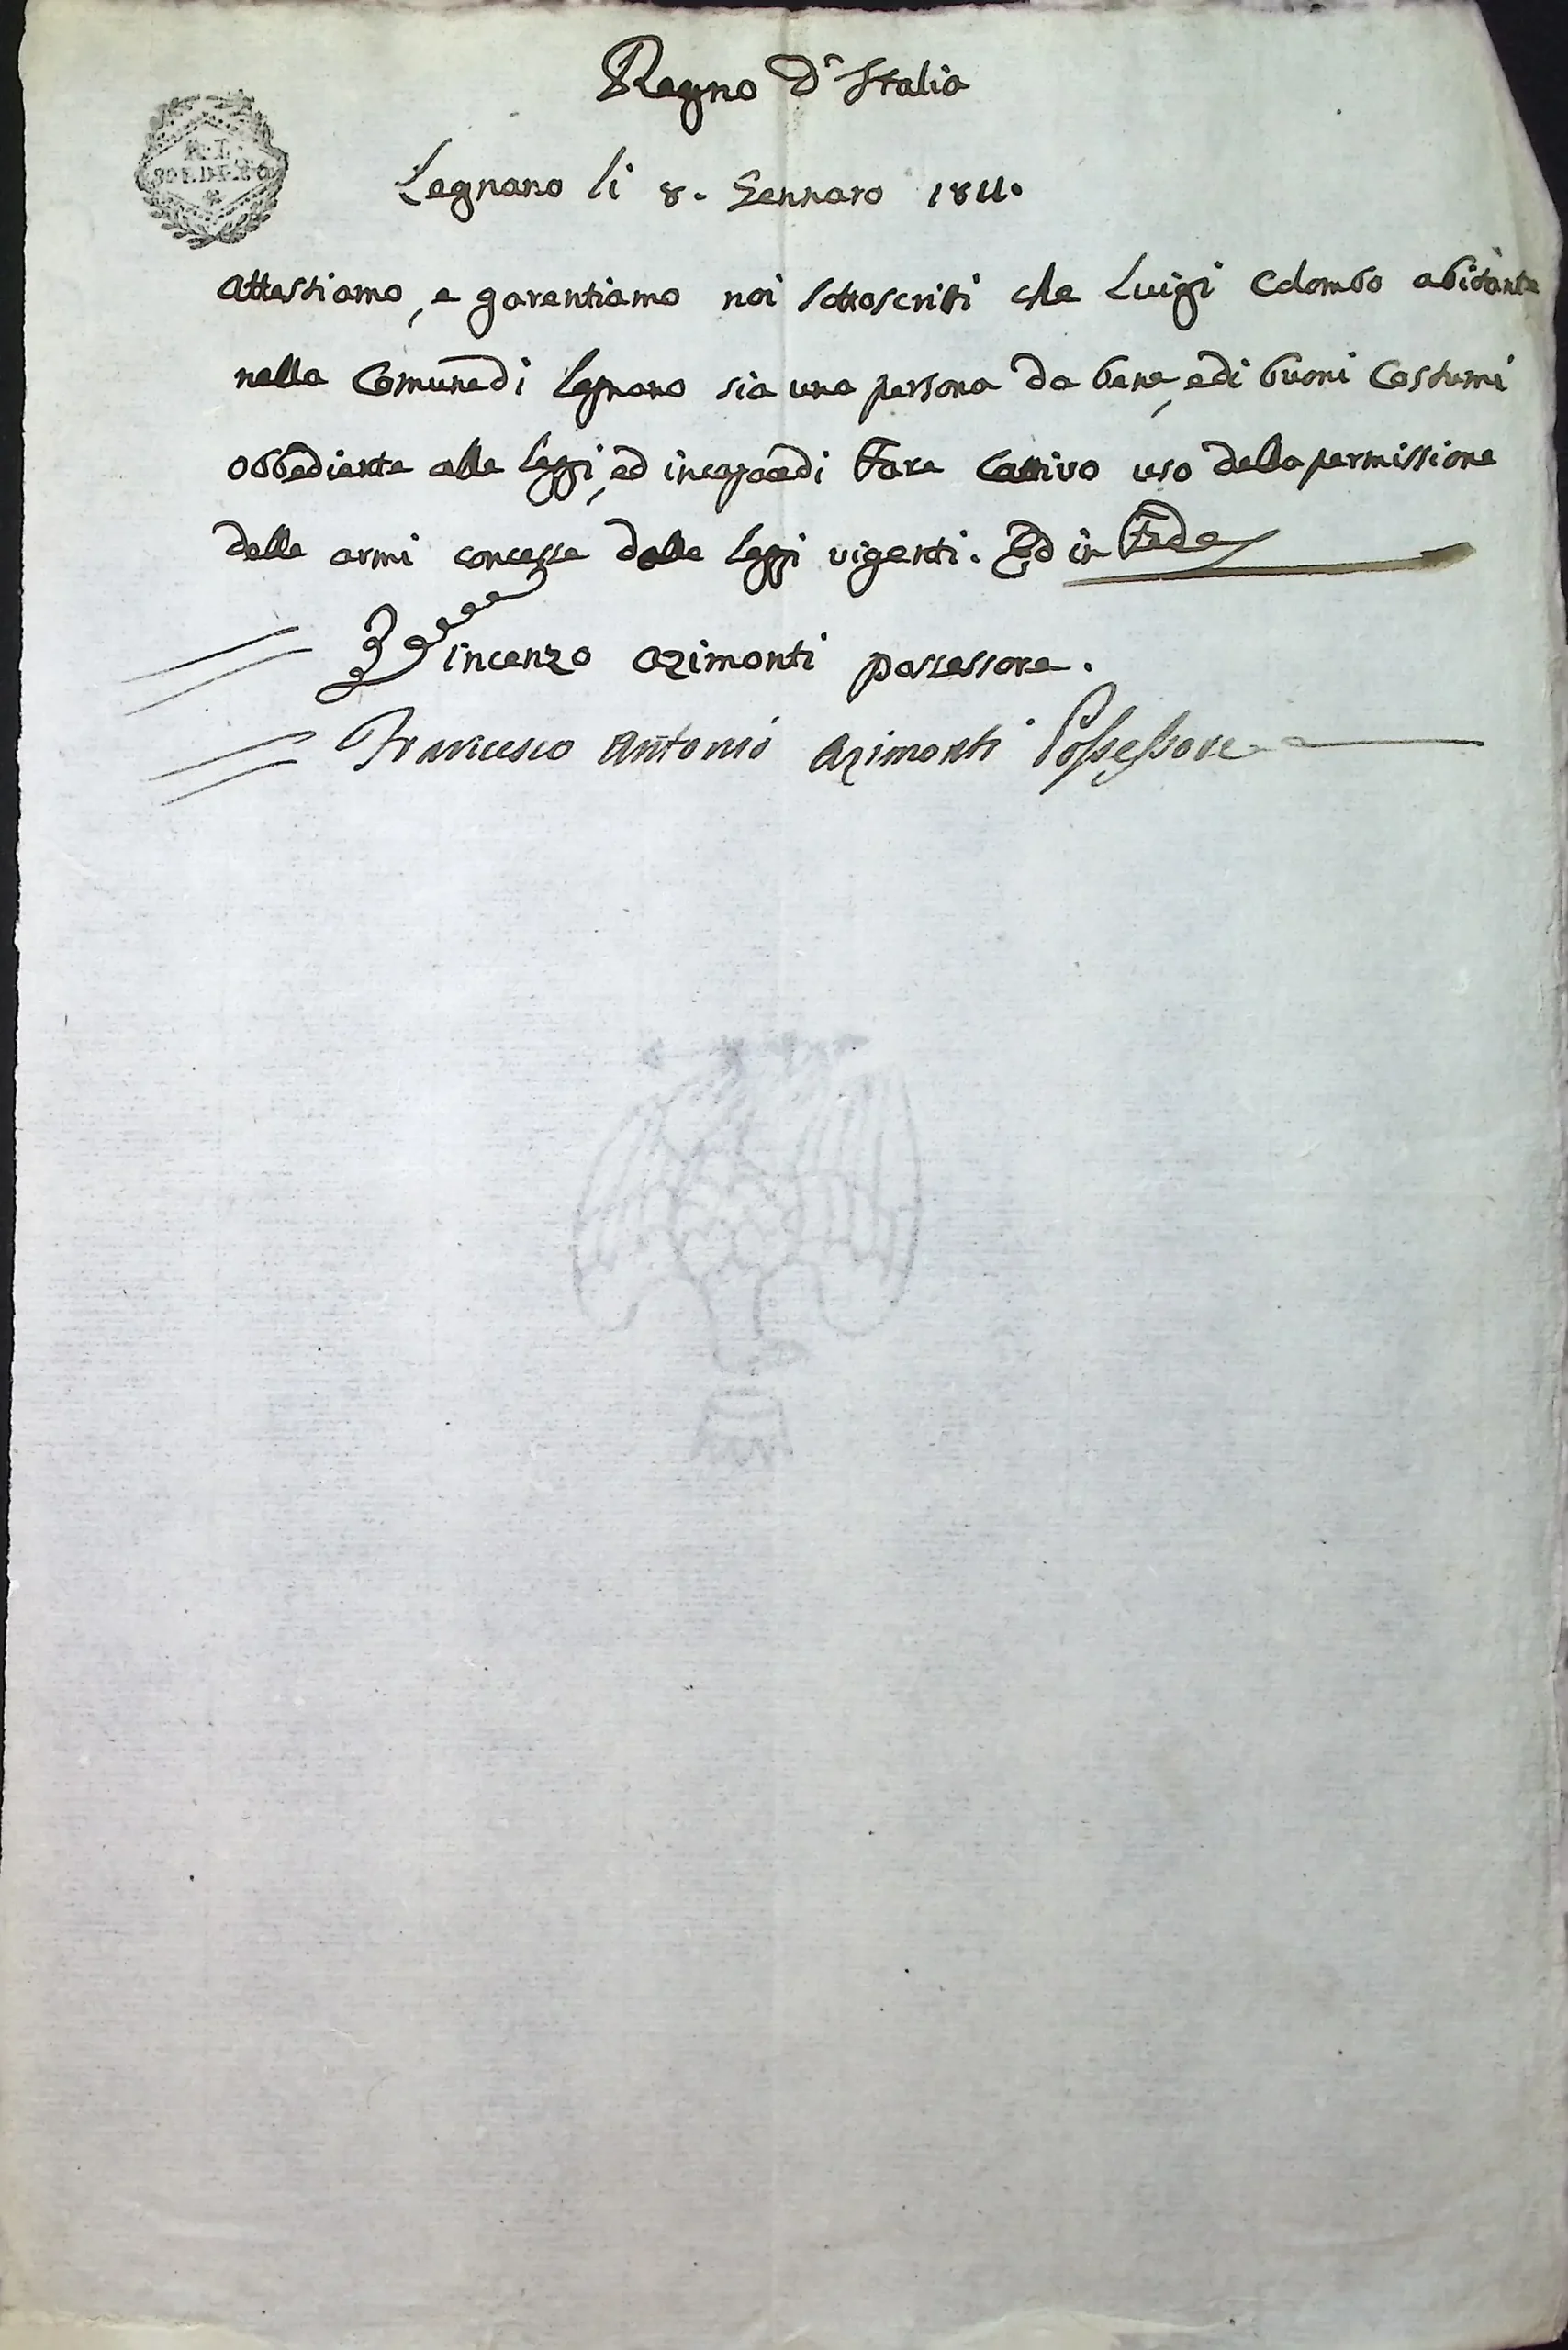 Regno d'Italia
Legnano li 8. Gennaro 1811.
R. I.
attestiamo, e garentiamo noi sottoscritti che Luigi Colombo abitante
nella Comune di Legnano sia una persona da bene, e di buoni Costumi
obbediente alle leggi, ed incapace di Fare Cattivo uso della permissione
delle armi concesse dalle leggi vigenti. Ed in Fede
Vincenzo azimonti possessore.
Francesco Antonio Azimonti Possessore